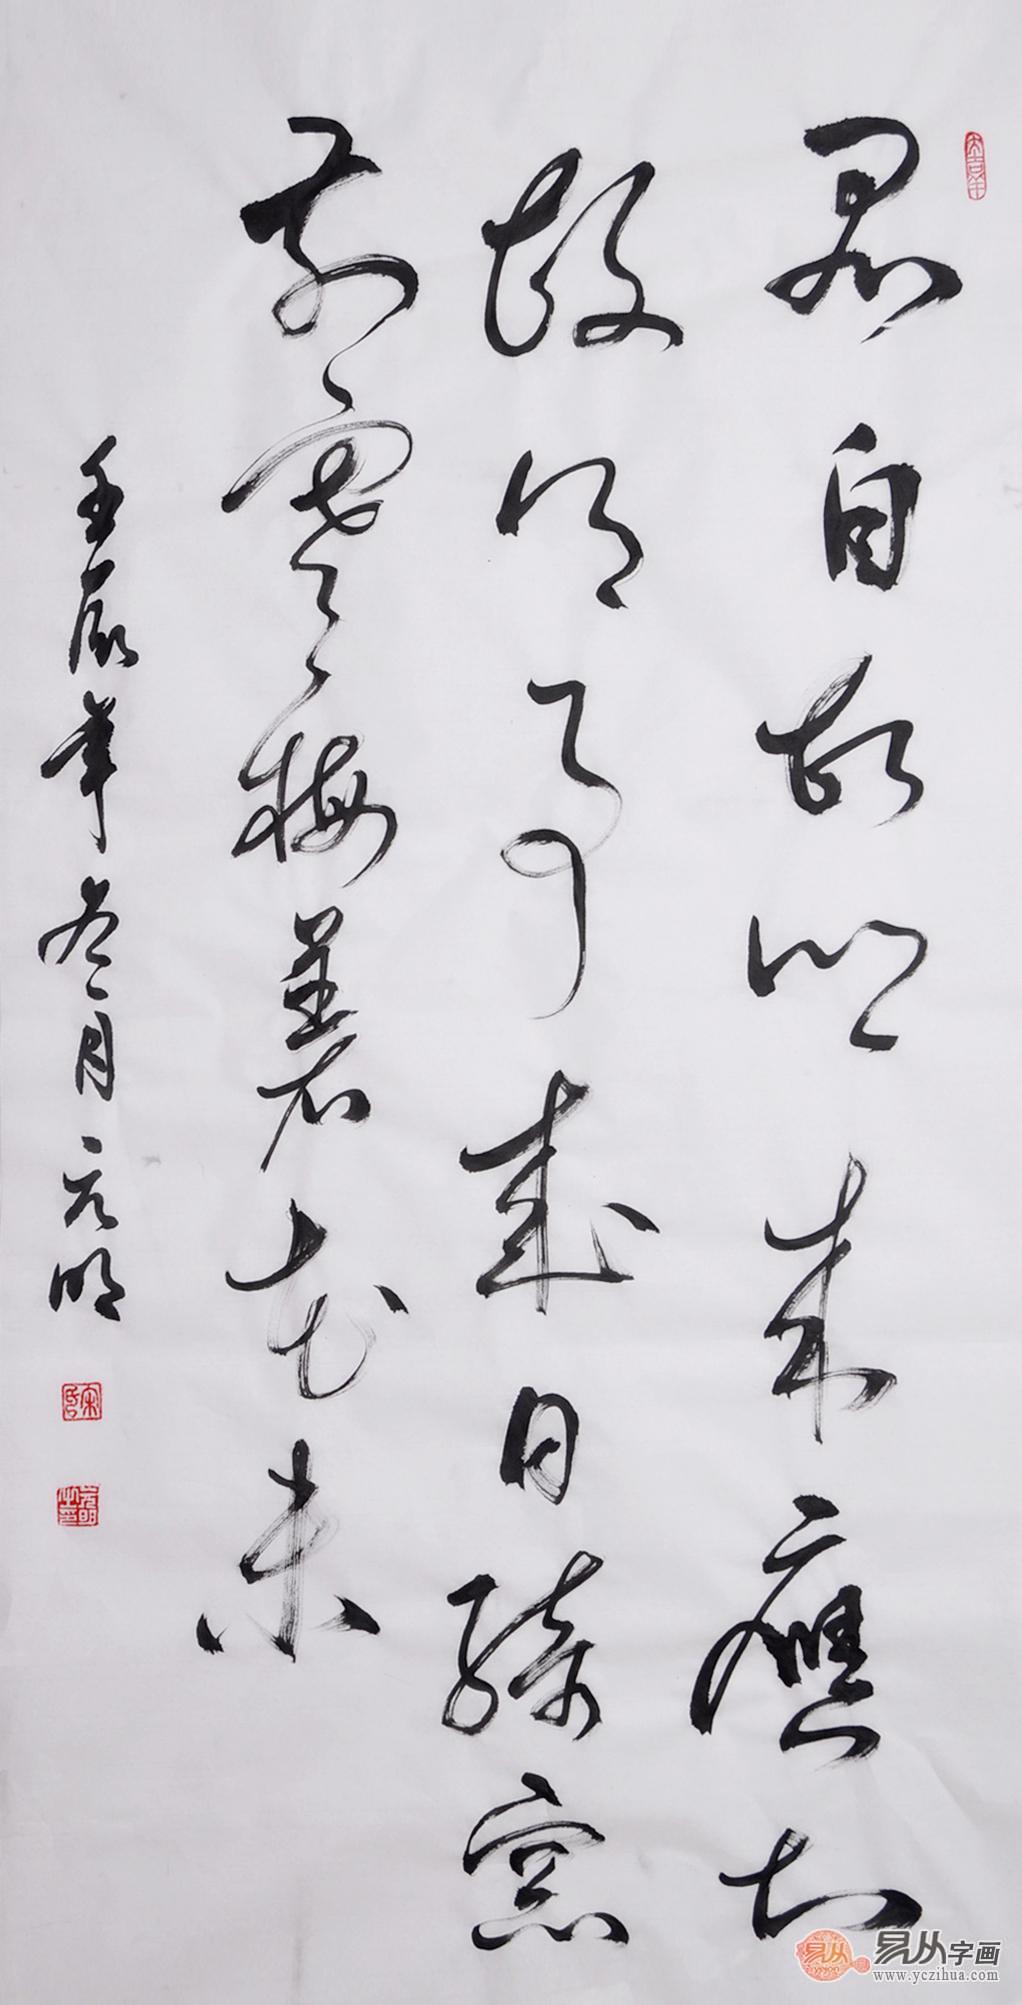 君自故乡来应知
故乡事来日绮窗
前寒梅著花未
壬辰年冬月元明
易从字画
www.yczihua.com